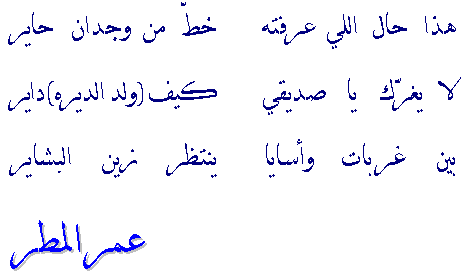 هذا حال اللي عرفته خطّ من وجدان حاير
لا يغرّك يا صديقي كيف (ولد الديره) داير
بين غربات وأسايا ينتظر زين البشاير
عمر المطر